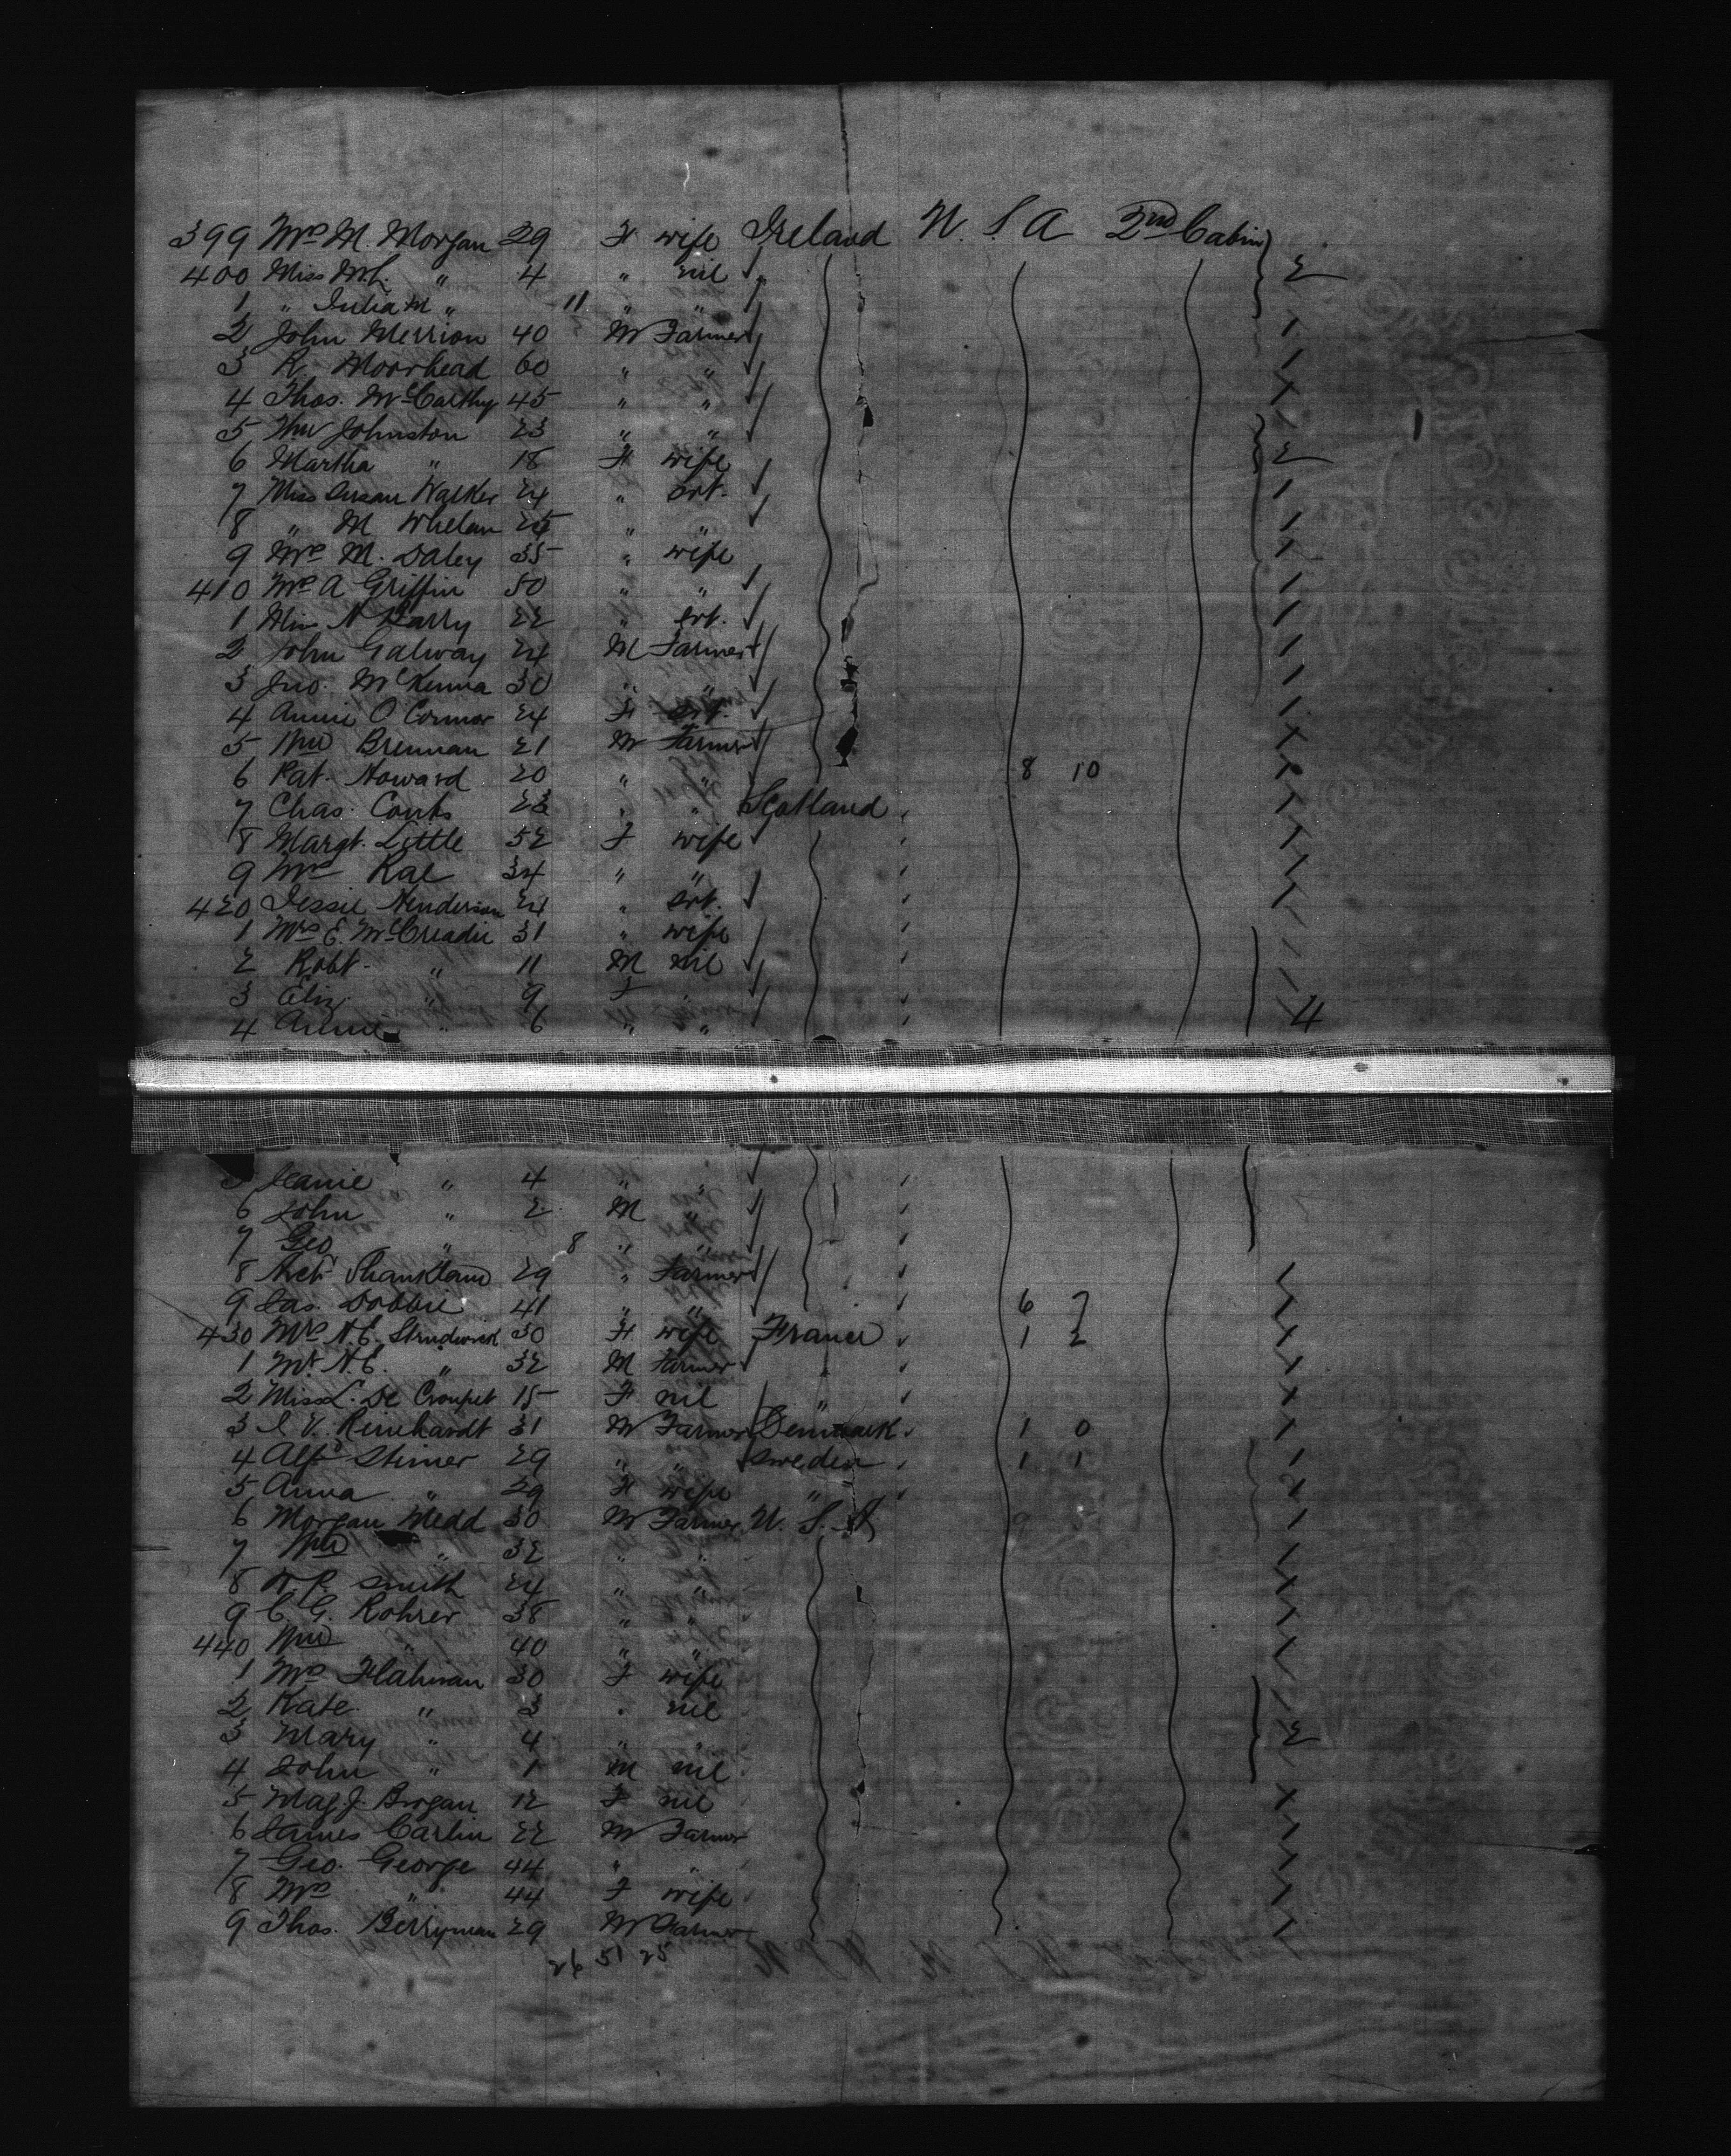 399 Mrs M. Morgan 29 F wife Ireland U. S. A 2nd Cabin
400 Miss M.L. " 4 " nil " 2
1 " Julia M " 11 " "
2 John Merrion 40 M Farmer 1
3 R. Moorhead 60 " " 1
4 Thos. McCarthy 45 " " 1
5 Wm Johnston 23 " "
6 Martha " 18 F wife 2
7 Miss Susan Walker 24 " srt. 1
8 " M Whelan 25 " " 1
9 Mrs M. Daley 35 " wife 1
410 Mrs A Griffin 50 " " 1
1 Miss N Barry 22 " srt. 1
2 John Galway 24 M Farmer 1
3 Jno. McKenna 30 " " 1
4 Annie O Connor 24 F srt. 1
5 Wm Brennan 21 M Farmer 1
6 Pat. Howard 20 " " 8 10 1
7 Chas. Couts 23 " " Scotland 1
8 Margt. Little 52 F wife 1
9 Mrs Rae 34 " " 1
420 Jessie Henderson 24 " srt. 1
1 Mrs E. McCreadie 31 " wife
2 Robt. " 11 M nil
3 Eliz. " 9 F "
4 Annie " 6 " " 4
5 Jeanie " 4 " "
6 John " 2 M "
7 Geo " 8 " "
8 Arct Shankland 29 " Farmer 1
9 Jas. Dobbie 41 " " 6 7 1
430 Mrs N.E. Strudwick 30 F wife France 1 2 1
1 Mr. N.E. " 32 M Farmer 1
2 Miss L. De Croupet 15 F nil " 1
3 J. V. Reinhardt 31 M Farmer Denmark 1 0 1
4 Alfd Stiner 29 " " Sweden 1 1 1
5 Anna " 29 F wife " 1
6 Morgan Medd 30 M Farmer U. S. A 9 1
7 Wm " 32 " " 1
8 W. P. Smith 24 " " 1
9 C. G. Rohrer 38 " " 1
440 Wm " 40 " " 1
1 Mrs Flahman 30 F wife
2 Kate " 3 " nil
3 Mary " 4 " " 2
4 John " 1 M nil
5 Mag. J. Brogan 12 F nil 1
6 James Carlin 22 M Farmer 1
7 Geo. George 44 " " 1
8 Mrs " 44 F wife 1
9 Thos. Berryman 29 M Farmer 1
26 51 25